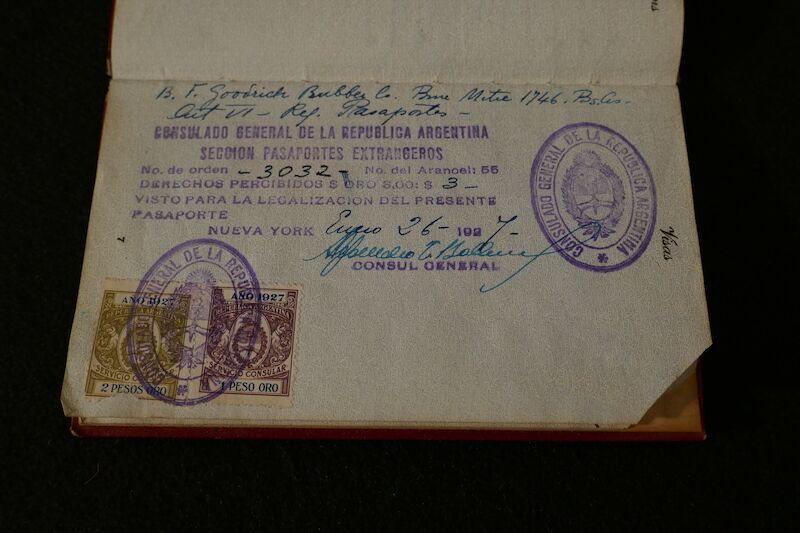 B. F. Goodrich Rubber Co. Bme Mitre 1746. Bs. As.
Art VI - Reg. Pasaportes -
CONSULADO GENERAL DE LA REPUBLICA ARGENTINA
SECCION PASAPORTES EXTRANGEROS
No. de orden - 3032 - No. del Arancel: 55
DERECHOS PERCIBIDOS $ ORO 3,00: $ 3 -
VISTO PARA LA LEGALIZACION DEL PRESENTE
PASAPORTE
NUEVA YORK Enero 26 - 1927 -
CONSUL GENERAL
CONSULADO GENERAL DE LA REPUBLICA ARGENTINA
Visas
GENERAL DE LA REPUB
AÑO 1927
SERVICIO
2 PESOS ORO
AÑO 1927
REPUBLICA ARGENTINA
SERVICIO CONSULAR
1 PESO ORO